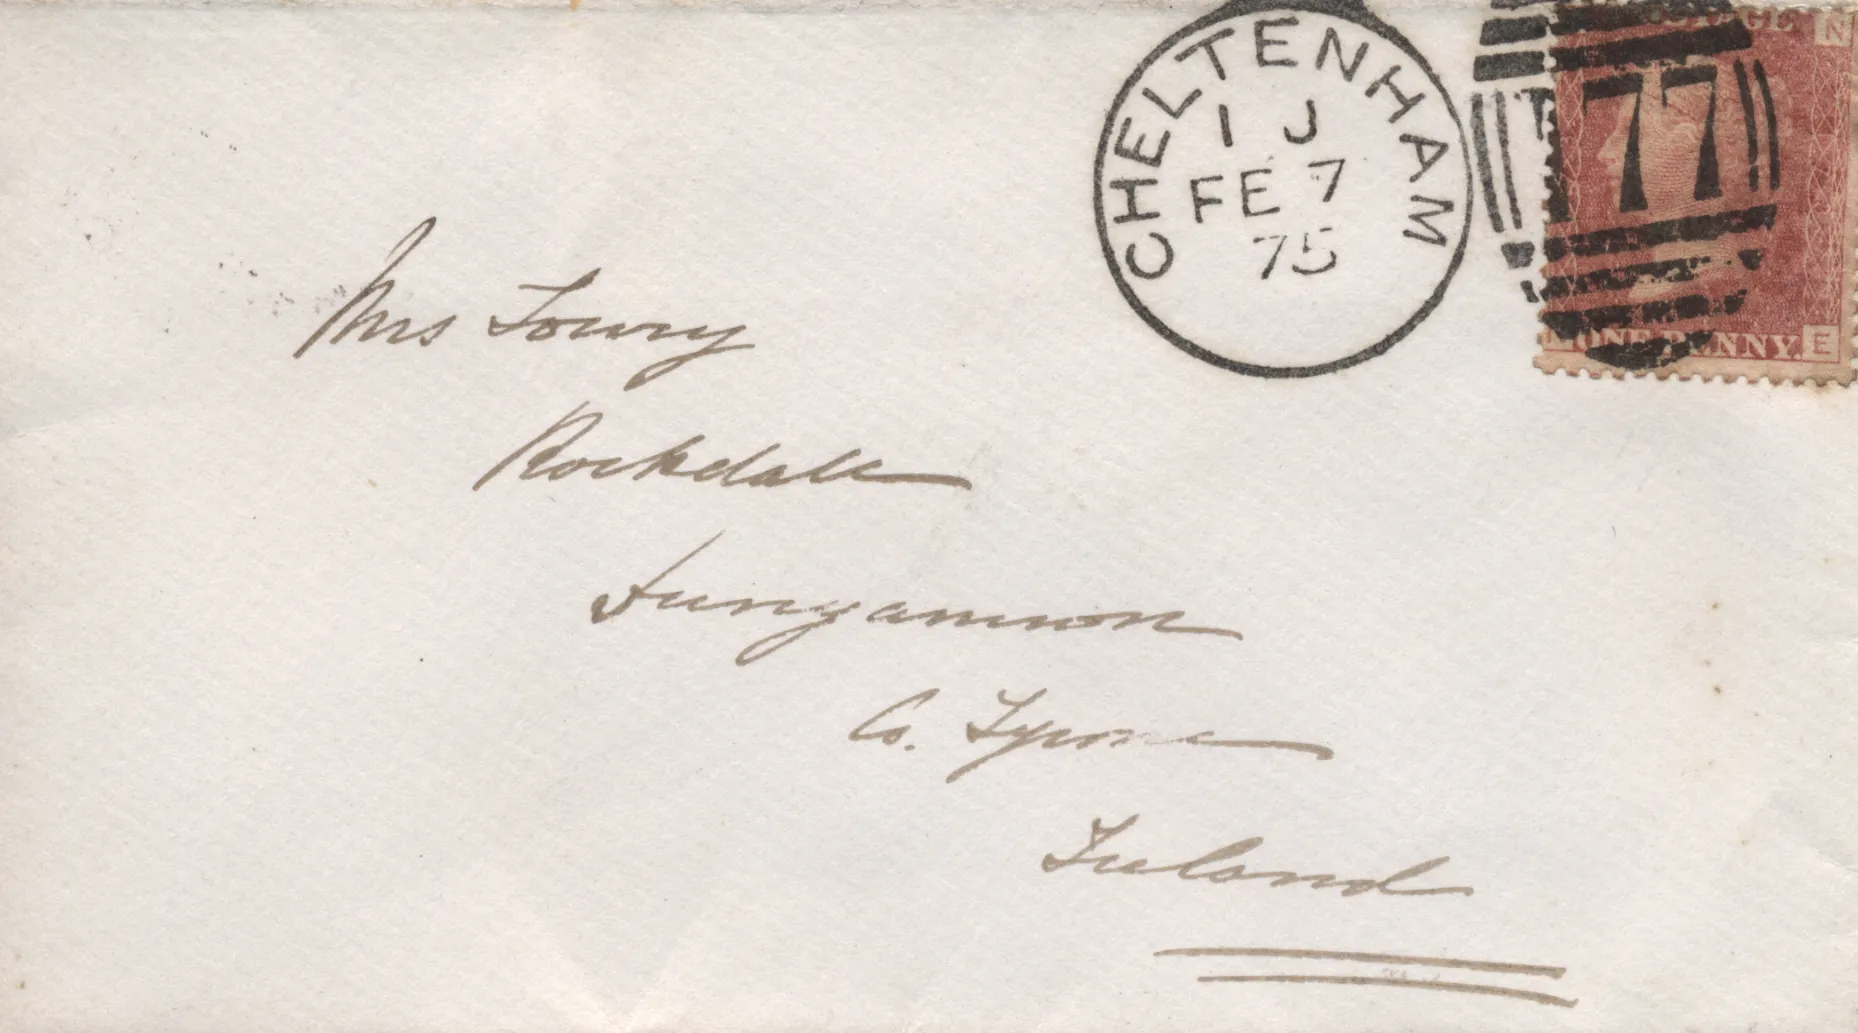 CHELTENHAM
1 J
FE 7
75
77
N
ONE PENNY.
E
Mrs Lowry
Rockdale
Dungannon
Co. Tyrone
Ireland